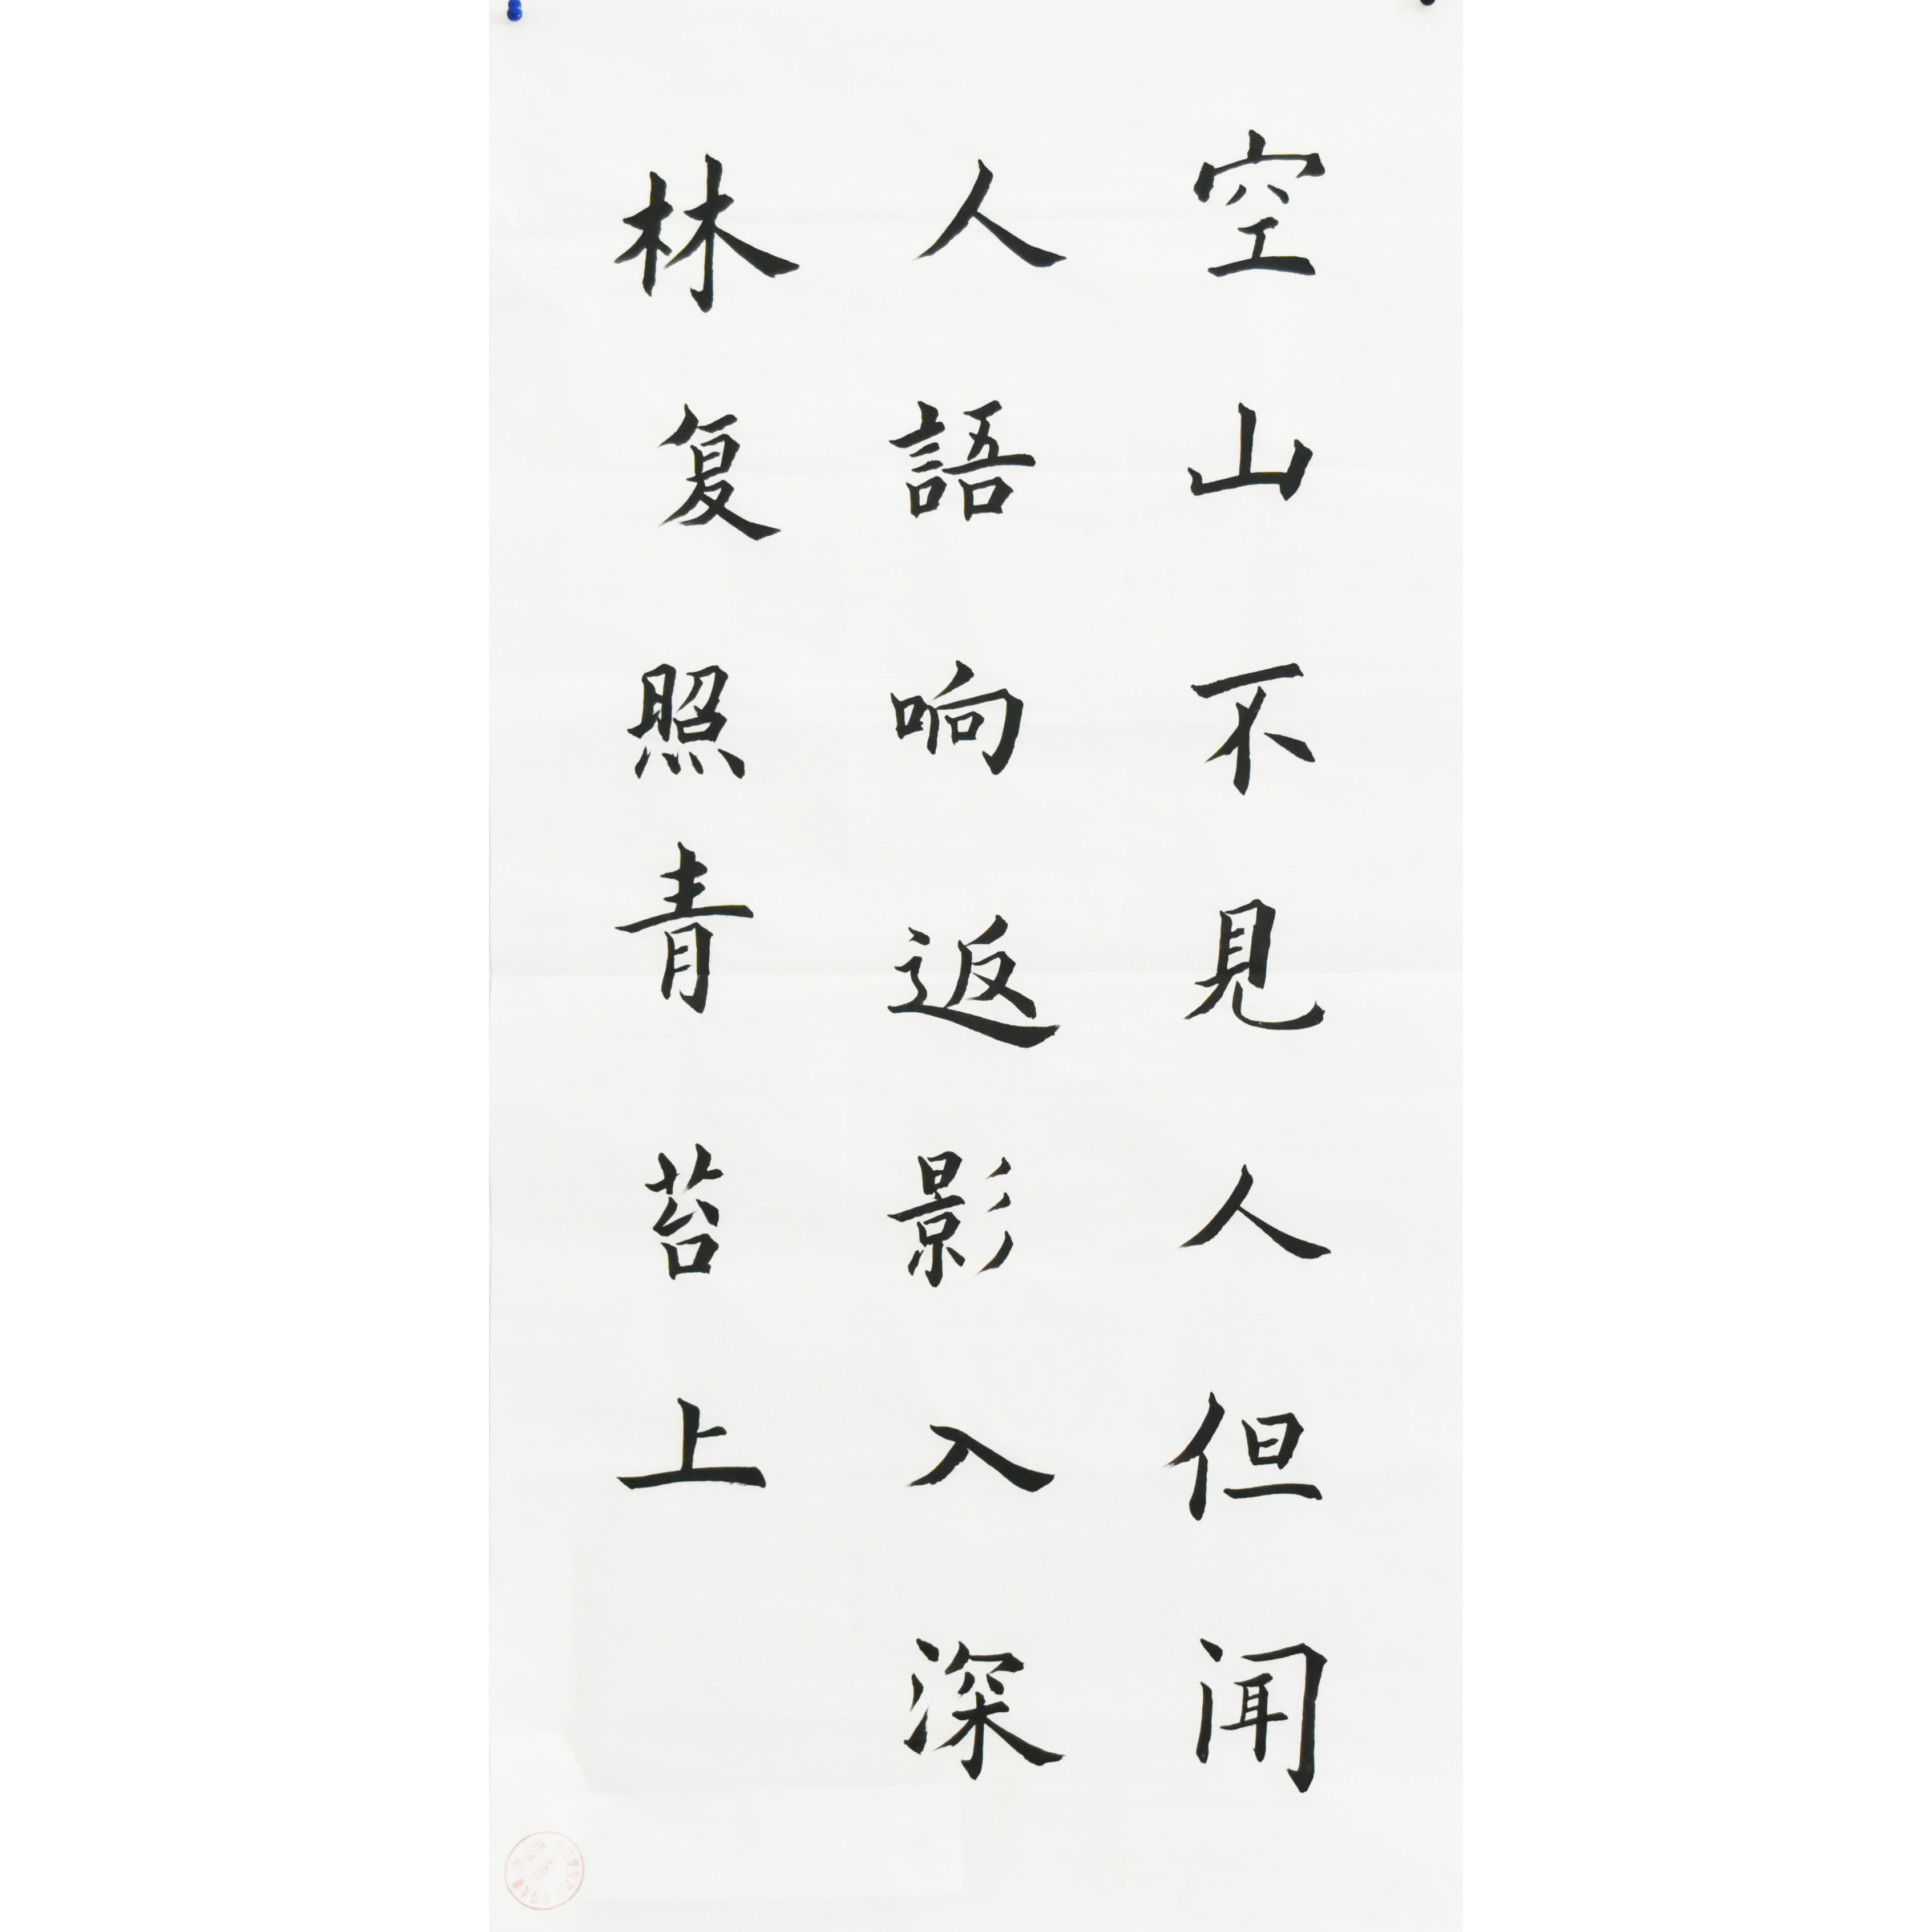 空山不見人但闻
人語响返影入深
林复照青苔上